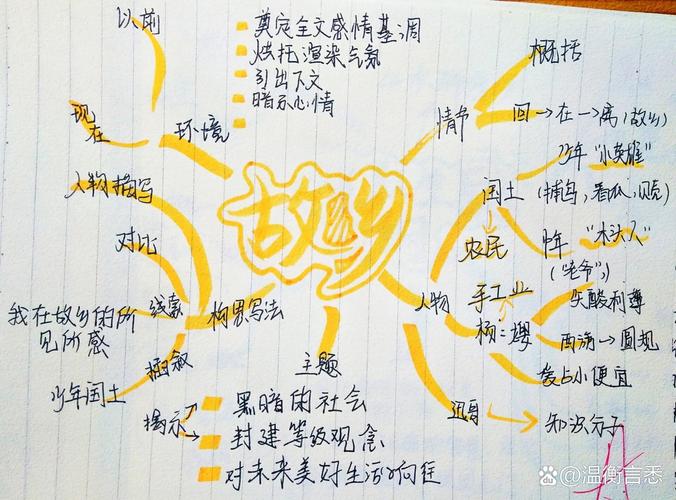 故乡
环境
以前
现在
奠定全文感情基调
烘托渲染气氛
引出下文
暗示心情
情节
概括
回→在→离(故乡)
人物
闰土
少年“小英雄”
(捕鸟,看瓜,贝壳)
农民
中年“木头人”
手工业
杨二嫂
尖酸刻薄
西施→圆规
爱占小便宜
迅哥
知识分子
主题
揭示
黑暗的社会
封建等级观念
对未来美好生活的向往
构思写法
人物描写
对比
线索
我在故乡的所
见所感
插叙
少年闰土
Bai百家号/温衡言悉